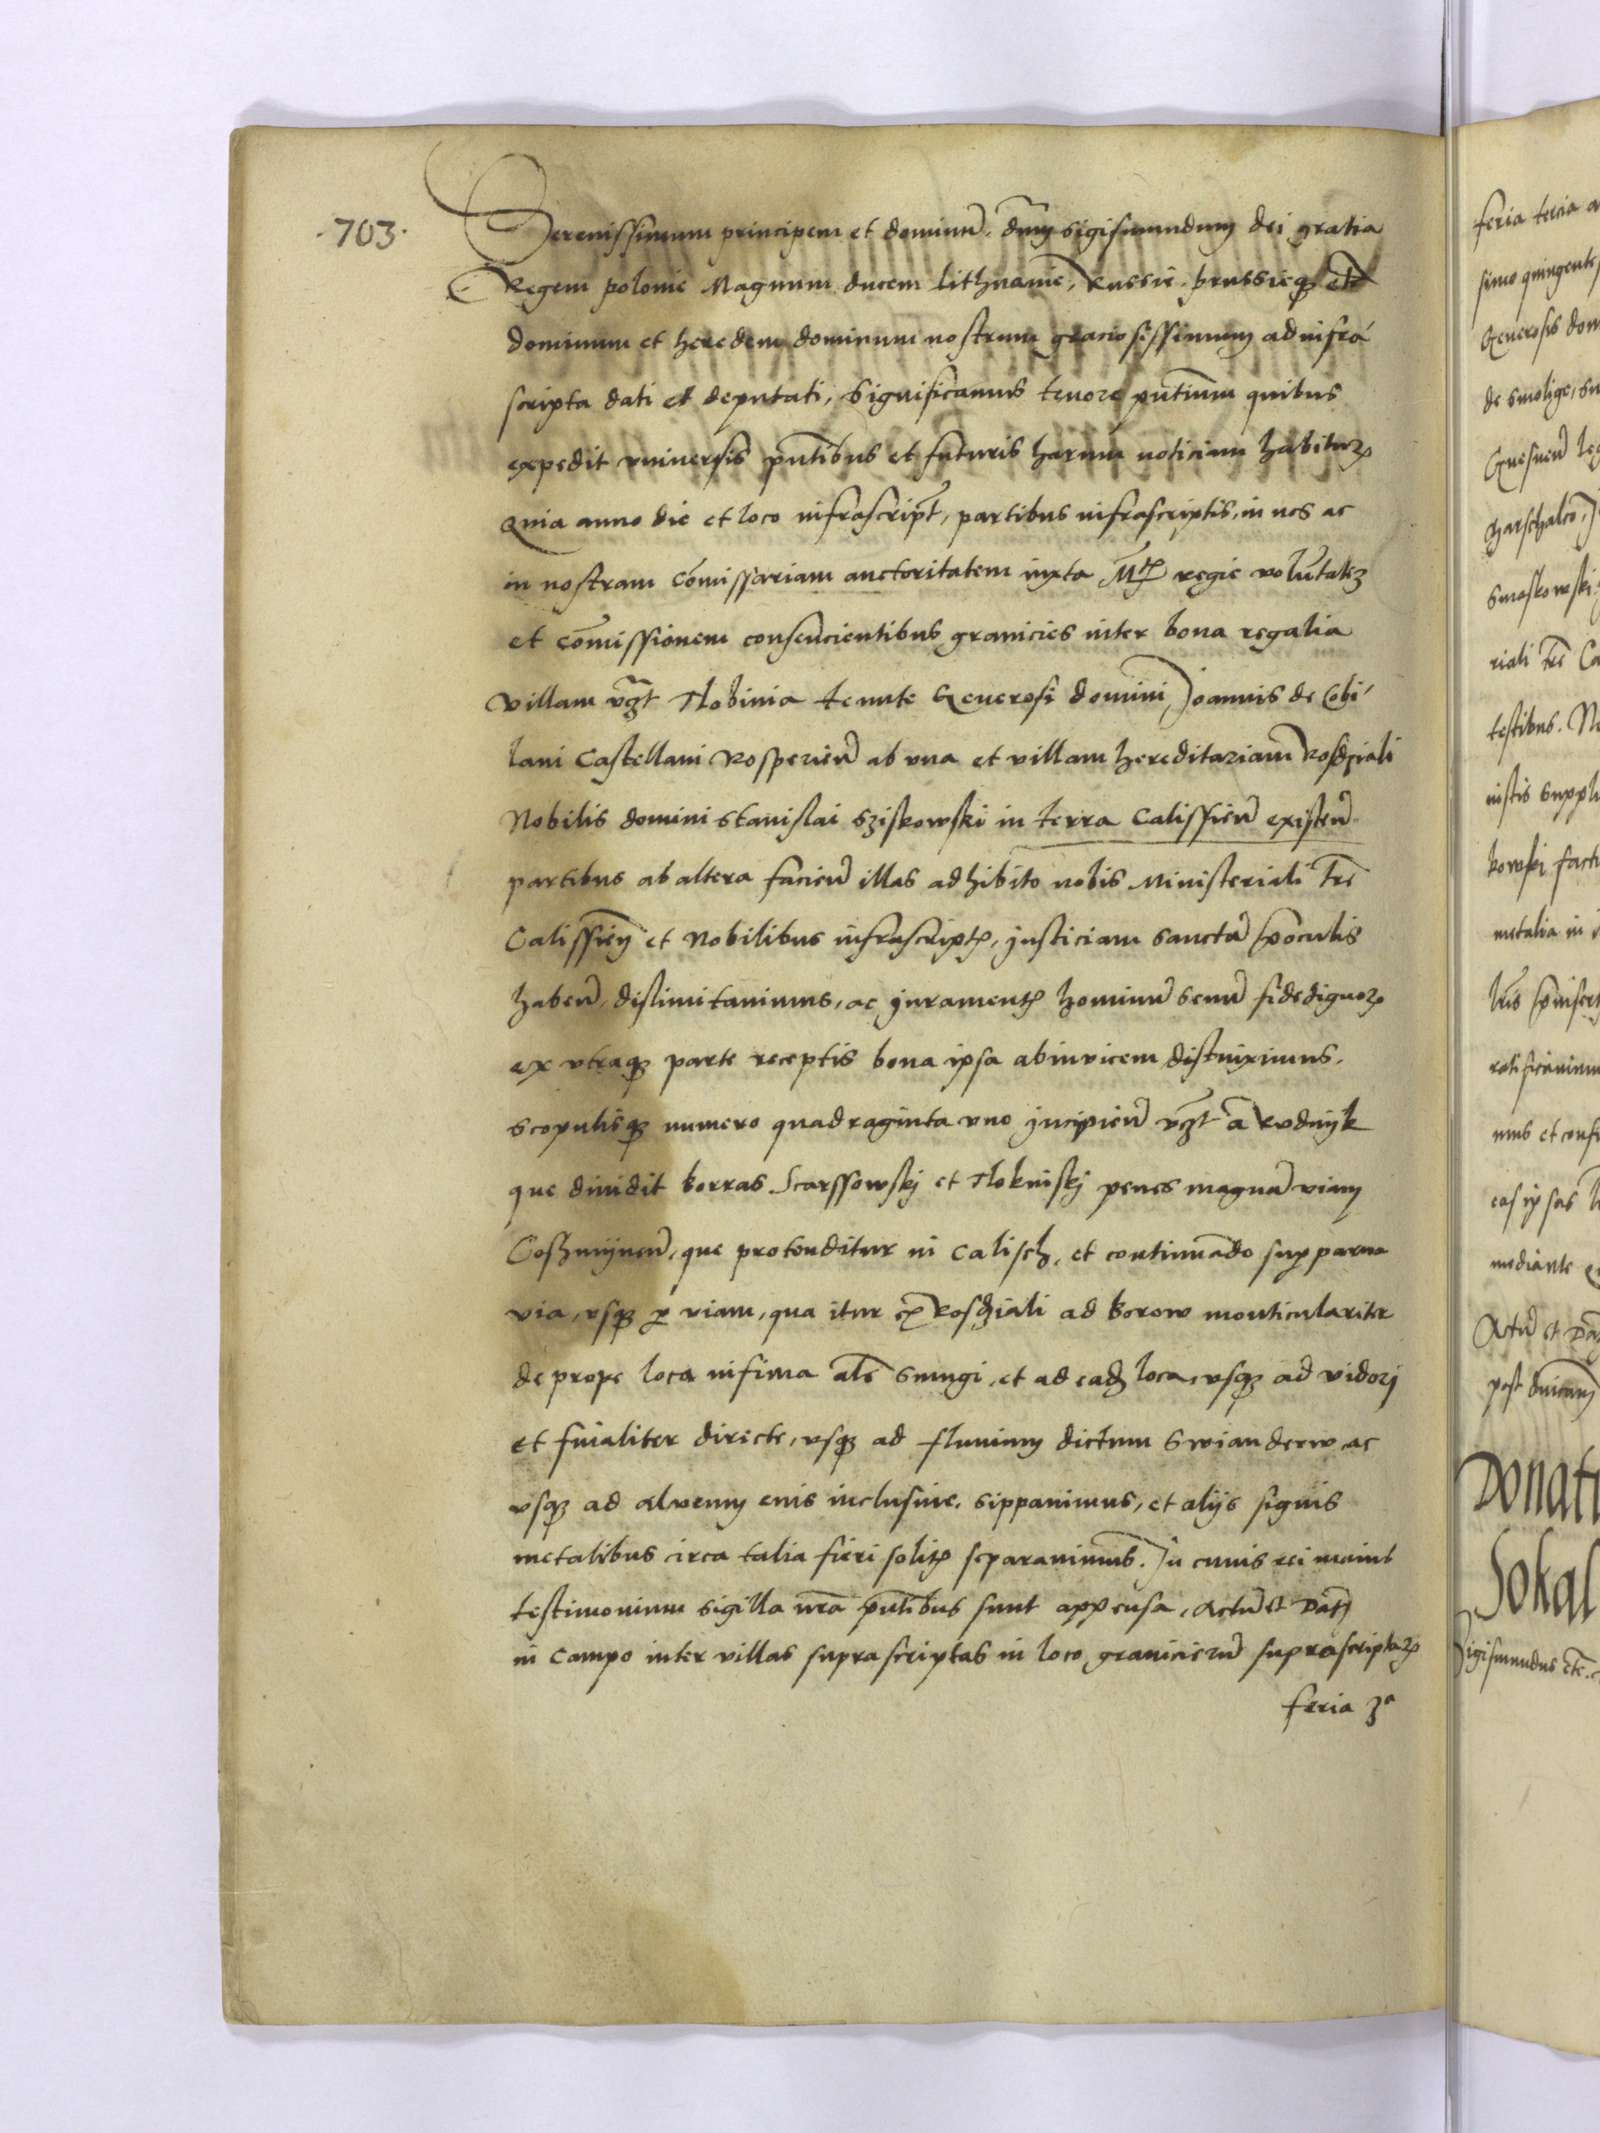 ·703·
Serenissimum principem et dominũ, dñm Sigismundum dei gratia
Regem polonie Magnum ducem Lithuanie, Russie, prussieq3 etc
dominum et heredem dominum nostrum graciosissimum ad infra
scripta dati et deputati, Significamus tenore pñtium quibus
expedit vniuersis pñtibus et futuris harum noticiam habituꝝ
Quia anno die et loco infrascript, partibus infrascriptis, in nos ac
in nostram cõmissariam auctoritatem iuxta Mtis regie volũtatẽ
et cõmissionem consencientibus granicies inter bona regalia
villam vꝫt Tlokinia tenute Generosi domini Joannis de Cobi
lani Castellani Rosperieñ ab vna et villam hereditariam Rosdziali
Nobilis domini Stanislai Sziskowski in terra Calissieñ existeñ
partibus ab altera facieñ illas adhibito nobis Ministeriali tre
Calissieñ et Nobilibus infrascriptis, justiciam sanctã p oculis
habeñ, dislimitauimus, ac juramentis hominũ senũ fidedignoꝝ
ex vtraq3 parte receptis bona ipsa abinuicem distinximus,
scopulisq3 numero quadraginta vno jncipieñ vꝫt a Rudnijk
que diuidit borras Scarssowskj et Tlokinskj penes magnã viam
Cosmineñ, que protenditur in Calisch, et continuãdo sup parua
via, vsq3 p viam, qua itur ex Rosdziali ad borow monticulariter
de prope loca infima als Smugi, et ad eadẽ loca, vsq3 ad vidorj
et finialiter directe, vsq3 ad fluuium dictum Swianderw, ac
vsq3 ad alueum eius inclusiue, sippauimus, et alijs signis
metalibus circa talia fieri solitis separauimus. In cuius rei
testimonium sigilla nrã pñtibus sunt appensa, Actũ et Datũ
in campo inter villas suprascriptas in loco granicierũ suprascriptaꝝ
feria 3ª
feria tercia
simo quingente
Generosis dom
de Smolige, Su
Gnesneñ
Smaskowski
riali tre Ca
testibus. No
kowski fact
metalia in
eas ipsas
mediante
Actũ et Da
post dnicam
Donati
Sokal
Sigismundus etc.